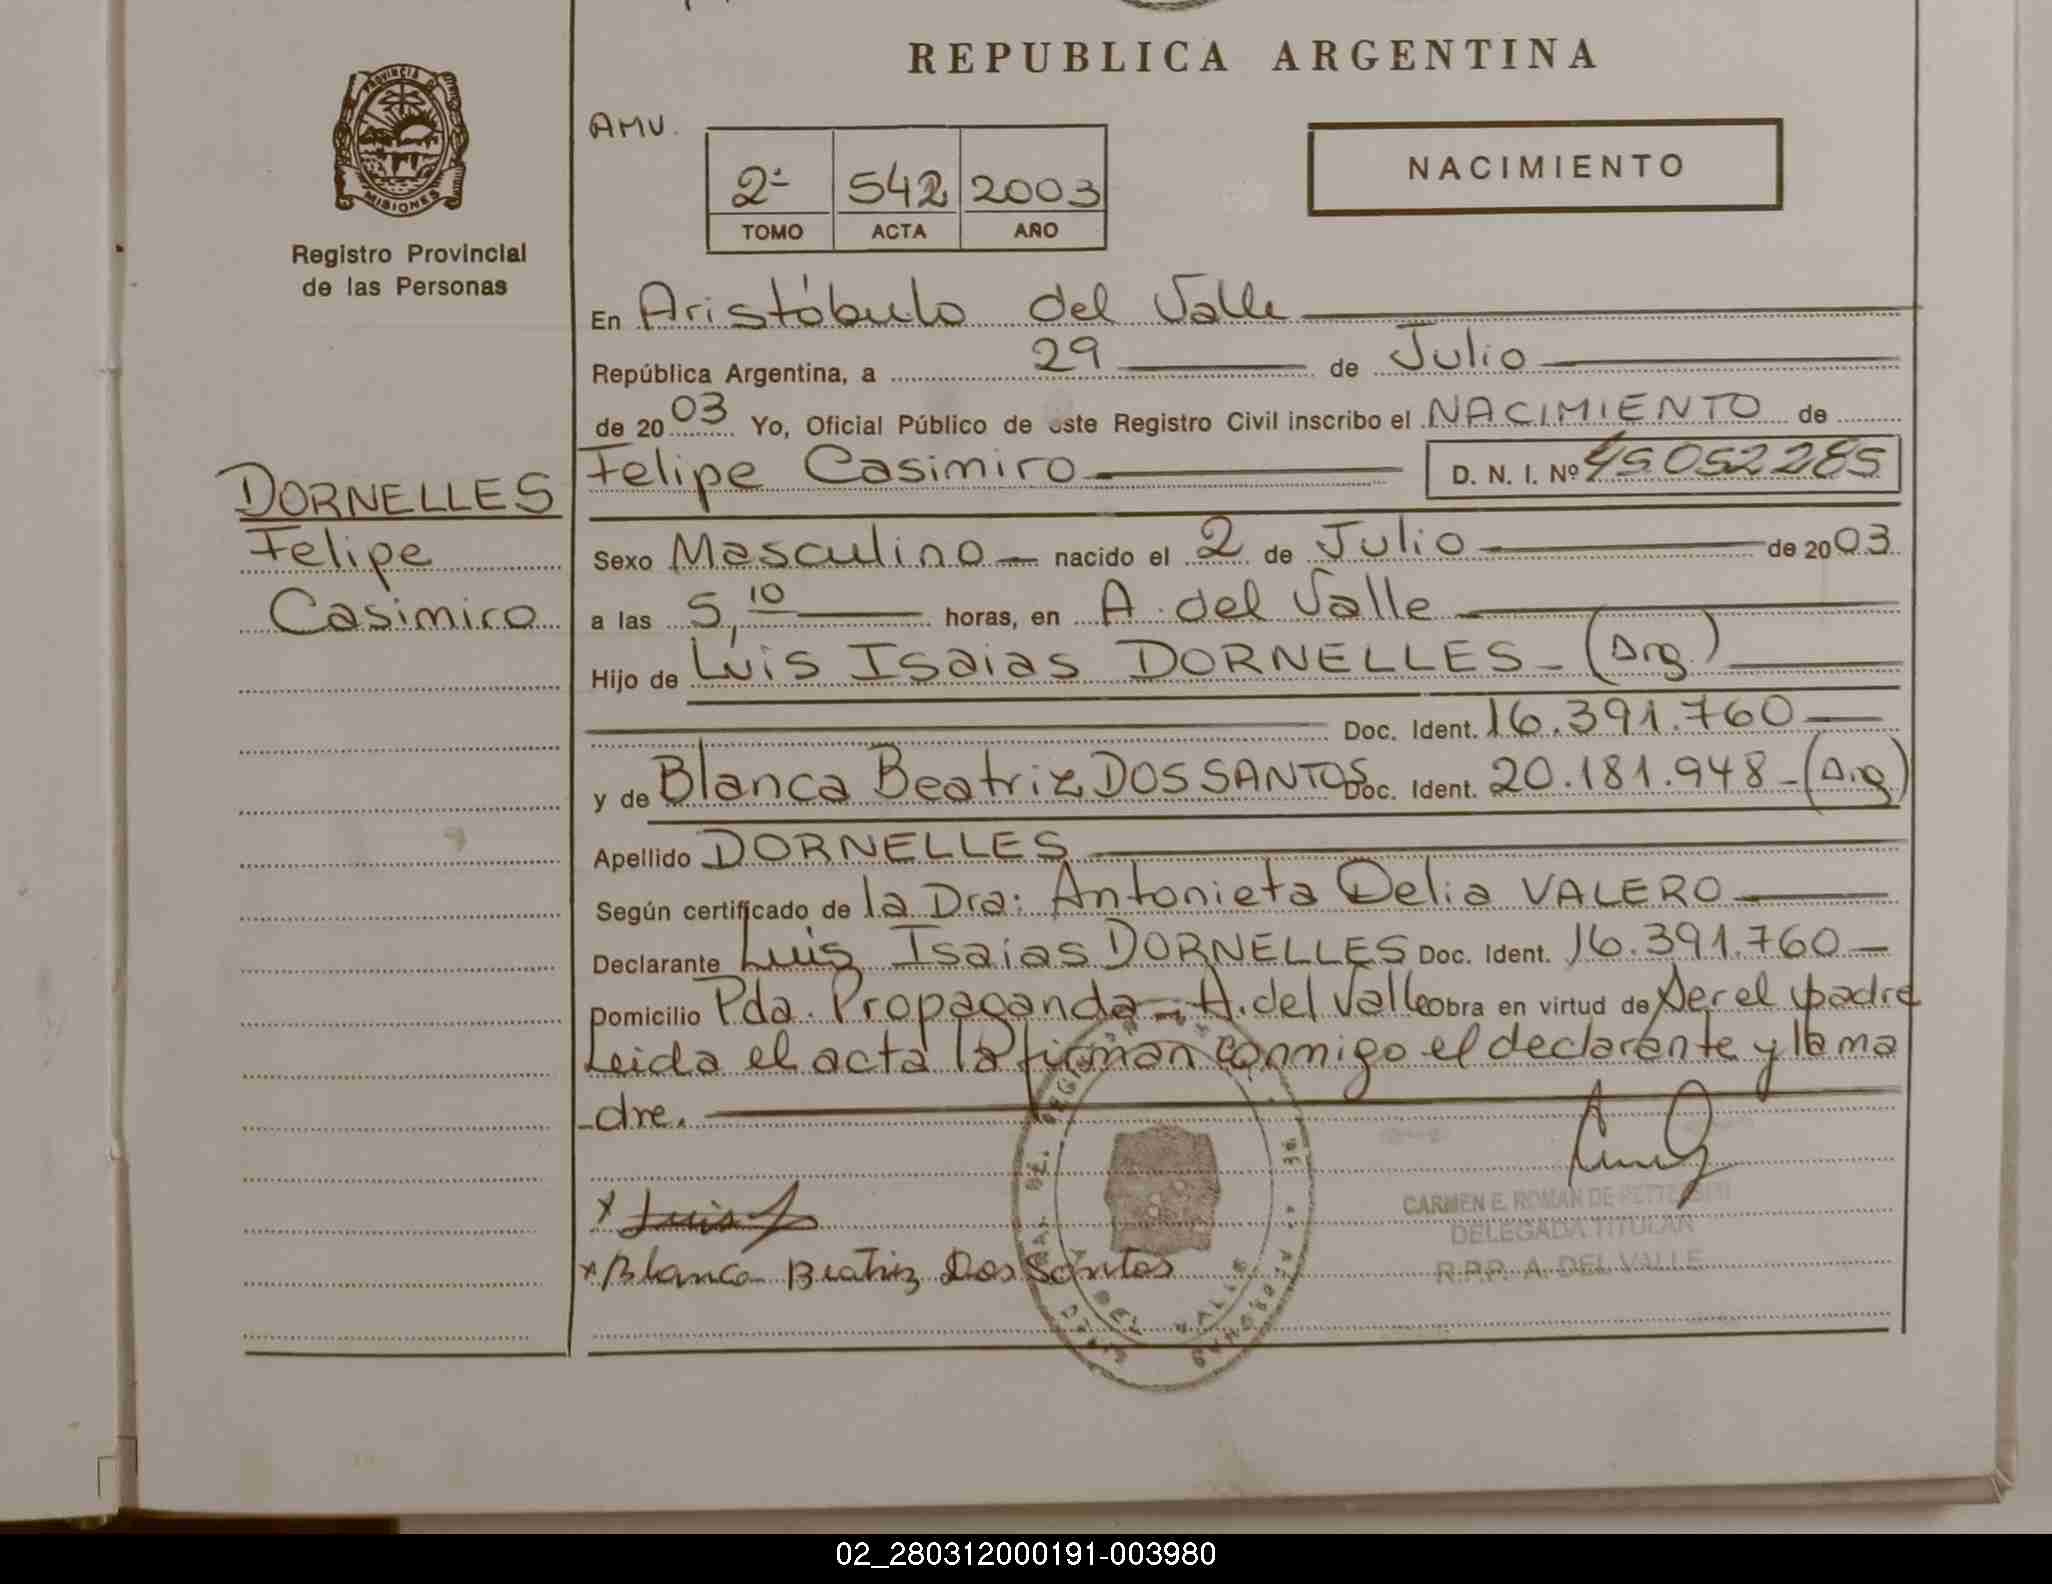 REPUBLICA ARGENTINA
PROVINCIA DE
MISIONES
Registro Provincial
de las Personas
AMV.
NACIMIENTO
2ª 542 2003
TOMO ACTA AÑO
En Aristóbulo del Valle
República Argentina, a 29 de Julio
de 2003 Yo, Oficial Público de este Registro Civil inscribo el NACIMIENTO de
Felipe Casimiro D. N. I. Nº 45052285
DORNELLES
Felipe
Casimiro
Sexo Masculino nacido el 2 de Julio de 2003
a las 5,10 horas, en A. del Valle
Hijo de Luis Isaias DORNELLES - (Arg.)
Doc. Ident. 16.391.760
y de Blanca Beatriz DOS SANTOS Doc. Ident. 20.181.948 - (Arg)
Apellido DORNELLES
Según certificado de la Dra: Antonieta Delia VALERO
Declarante Luis Isaias DORNELLES Doc. Ident. 16.391.760
Domicilio Pda. Propaganda - A. del Valle obra en virtud de ser el padre
Leida el acta la firman conmigo el declarante y la ma
-dre.
x Luis
x Blanca Beatriz Dos Santos
A. DEL VALLE
CARMEN E. ROMAN DE
DELEGADA TITULAR
R.P.P. A. DEL VALLE
02_280312000191-003980